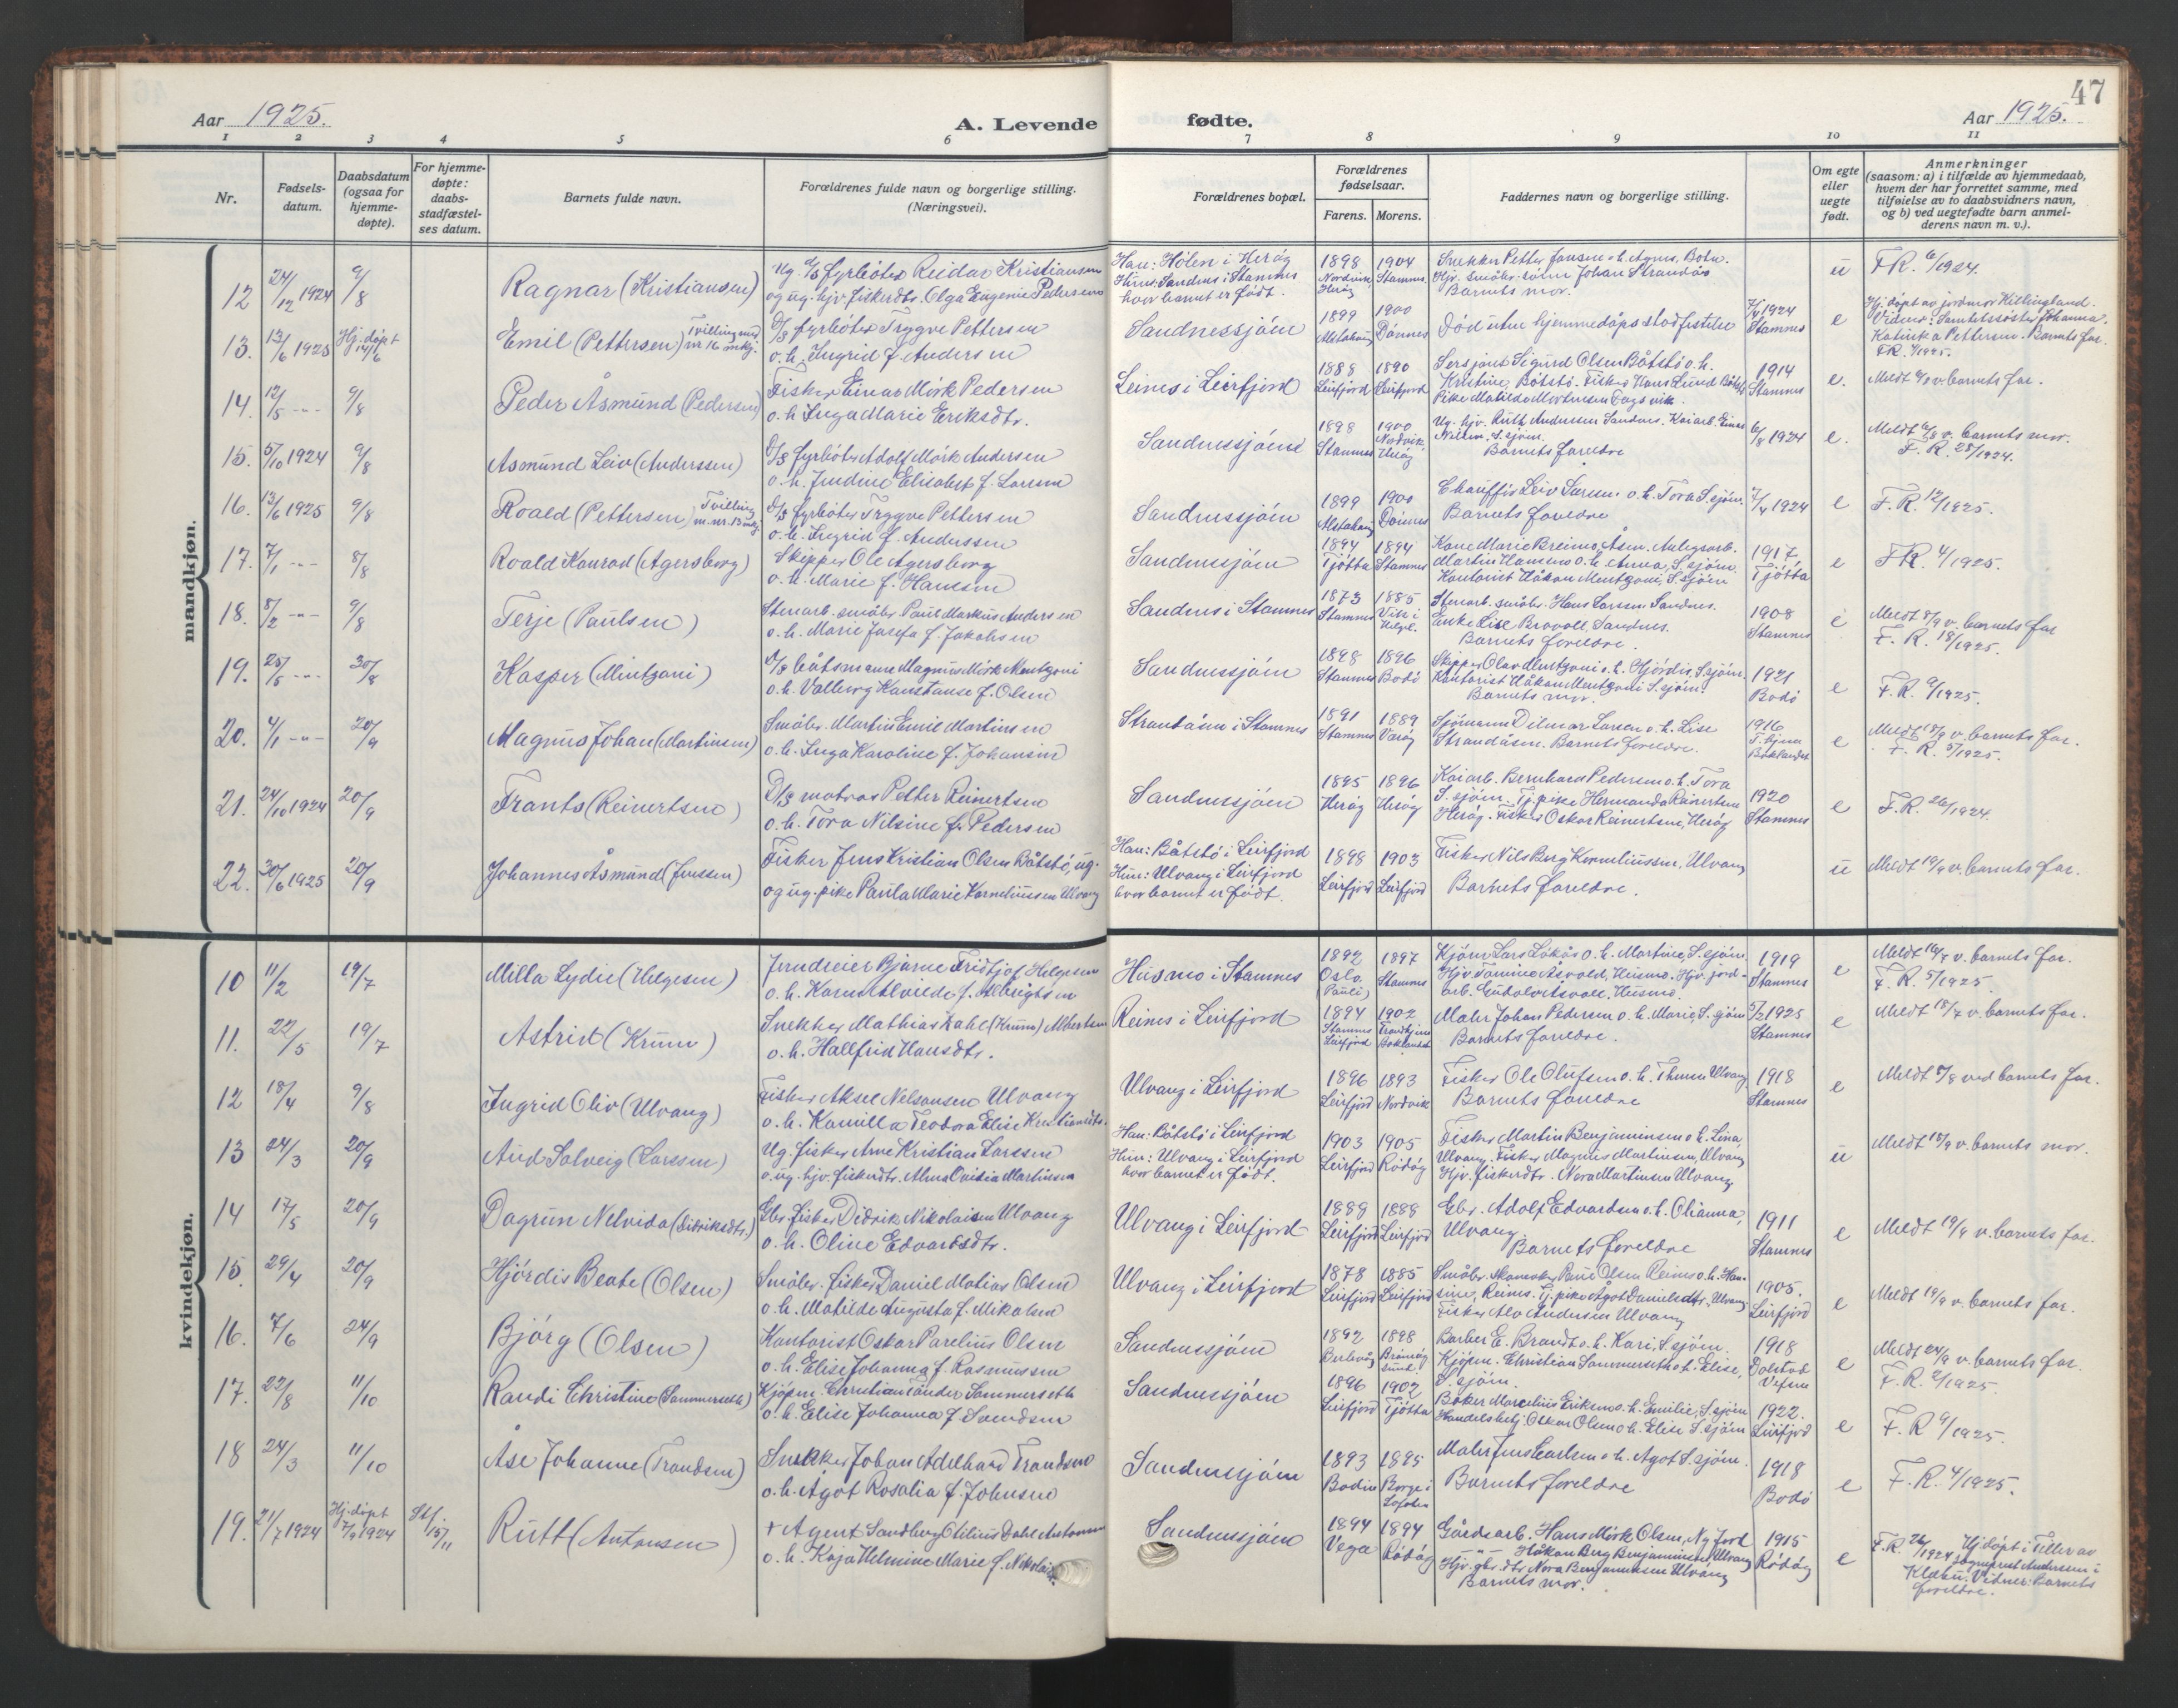 47
Aar 1925.
A. Levende
fødte.
Aar 1925.
1 2 3 4 5 6 7 8 9 10 11
Nr.
Fødsels-
datum.
Daabsdatum
(ogsaa for
hjemme-
døpte).
For hjemme-
døpte:
daabs-
stadfæstel-
ses datum.
Barnets fulde navn.
Forældrenes fulde navn og borgerlige stilling.
(Næringsvei).
Forældrenes bopæl.
Forældrenes
fødselsaar.
Farens. Morens.
Faddernes navn og borgerlige stilling.
Om egte
eller
uegte
født.
Anmerkninger
(saasom: a) i tilfælde av hjemmedaab,
hvem der har forrettet samme, med
tilføielse av to daabsvidners navn,
og b) ved uegtefødte barn anmel-
derens navn m. v.).
mandkjøn.
12 24/12 1924 9/8 Ragnar (Kristiansen)
Ug. D/S fyrbøter Reidar Kristiansen
og ug. hjv. fiskerdtr. Olga Eugenie Pedersen
Han: Hølen i Herøg
Hun: Sandnes i Stamnes
hvor barnet er født.
1898 Nordvik Herøg 1904 Stamnes
Snekker Petter Jensen o. h. Agnes, Botn.
Hjv. småbr. sønn Johan Strandås
Barnets mor.
u F.R. 6/1924.
13. 13/6 1925 Hj. døpt 14/6 Emil (Pettersen) Tvilling med nr 16 mkj.
D/S fyrbøter Trygve Pettersen
o. h. Ingrid f. Andersen
Sandnessjøen
1899 Alstahaug 1900 Dønnes
Død uten hjemmedåps stadfestelse
7/4 1924 Stamnes e
Hj. døpt av jordmor Killingland.
Vidner: Samtetssøster Johanna,
Katinka Pettersen. Barnets far.
F.R. 1/1925.
14. 12/5 -"- 9/8 Peder Åsmund (Pedersen)
Fisker Einar Mørk Pedersen
o. h. Inga Marie Eriksdtr.
Leines i Leirfjord
1888 Leirfjord 1890 Leirfjord
Sersjant Sigurd Olsen Båtstø o. h.
Kristine, Båtstø. Fisker Hans Lund Båtstø
Pike Matilda Mortensen Fagervik.
1914 Stamnes e. Meldt 9/8 v. barnets far.
15. 5/10 1924 9/8 Asmund Leiv (Anderssen)
D/S fyrbøter Adolf Mørk Andersen
o. h. Jendine Elisabet f. Larsen
Sandnessjøen
1898 Stamnes 1900 Nordvik Herøg
Ug. hjv. Rutt Andersen Sandnes. Kaiarb. Einar
Nilsen, S. sjøen.
Barnets foreldre
6/8 1924 e. Meldt 6/8 v. barnets mor.
F. R. 28/1924.
16. 13/6 1925 9/8 Roald (Pettersen) Tvilling m. nr. 13 mkj
D/S fyrbøter Trygve Pettersen
o. h. Ingrid f. Anderssen
Sandnessjøen
1899 Alstahaug 1900 Dønnes
Chauffør Leiv Larsen o. h. Tora S. sjøen.
Barnets foreldre
7/4 1924 e F. R. 12/1925.
17. 7/1 -"- 8/8 Roald Konrad (Agersborg)
Skipper Ole Agersborg
o. h. Marie f. Hansen
Sandnessjøen
1894 Tjøtta 1894 Stamnes
Kone Marie Breimo, Åsen. Anlegsarb.
Martin Hansen o. h. Anna, S. sjøen.
Kontorist Håkon Mentzoni, S. sjøen
1917, Tjøtta e F.R. 4/1925.
18. 8/2 -"- 9/8 Terje (Paulsen)
Stenarb. småbr. Paul Markus Andersen
o. h. Marie Josefa f. Jakobsen
Sandnes i Stamnes
1873 Stamnes 1885 Vik i Helgel.
Stenarb. småbr. Hans Larsen Sandnes.
Enke Lise Brovoll, Sandnes.
Barnets foreldre.
1908 Stamnes e Meldt 8/9 v. barnets far
F. R. 18/1925.
19. 25/5 -"- 30/8 Kasper (Mentzoni)
D/S båtsmann Magnus Mørk Mentzoni
o. h. Valborg Konstanse f. Olsen
Sandnessjøen
1898 Stamnes 1896 Bodø
Skipper Olav Mentzoni o. h. Hjørdis, S. sjøen.
Kontorist Håkon Mentzoni S. sjøen.
Barnets mor.
1921 Bodø e F. R. 9/1925.
20. 4/1 -"- 20/9 Magnus Johan (Martinsen)
Småbr. Martin Emil Martinsen
o. h. Inga Karoline f. Johansen
Strandåsen i Stamnes
1891 Stamnes 1889 Værøy
Sjømann Dilmar Larsen o. h. Lise
Strandåsen. Barnets foreldre.
1916 T. hjem Baklandet e Meldt 18/9 v. barnets far.
F. R. 5/1925.
21. 24/10 1924 20/9 Frants (Reinertsen)
D/S matros Petter Reinertsen
o. h. Tora Nilsine f. Pedersen
Sandnessjøen
1895 Herøg 1896 Herøg
Kaiarb. Bernhard Pedersen o. h. Tora
S. sjøen. Tj. pike Hermanda Reinertsen
Herøg. Fisker Oskar Reinertsen, Herøg
1920 Stamnes e F.R. 26/1924.
22. 30/6 1925 20/9 Johannes Åsmund (Jenssen)
Fisker Jens Kristian Olsen Båtstø, ug.
og ug. pike Paula Marie Korneliussen Ulvang
Han: Båtstø i Leirfjord
Hun: Ulvang i Leirfjord
hvor barnet er født.
1898 Leirfjord 1903 Leirfjord
Fisker Nils Berg Korneliussen, Ulvang
Barnets foreldre.
u Meldt 19/9 v. barnets far.
kvindekjøn.
10 11/2 19/7 Milla Lydie (Helgesen)
Jerndreier Bjarne Fridtjof Helgesen
o. h. Karen Alvilde f. Albrigtsen
Husmo i Stamnes
1892 Oslo, (Pauli) 1897 Stamnes
Kjøm. Lars Løkås o. h. Martine, S. sjøen.
Hjv. Tomine Åsvold, Husmo. Hjv. jord-
arb. Gudolv Åsvoll, Husmo.
1919 Stamnes e Meldt 16/7 v. barnets far.
F. R. 5/1925.
11. 22/5 19/7 Astrid (Krum)
Snekker Mathias Dahl (Krum) Albertsen
o. h. Hallfrid Hansdtr.
Reines i Leirfjord
1894 Stamnes Leirfjord 1902 Trondhjem Baklandet
Maler Johan Pedersen o. h. Marie, S. sjøen
Barnets foreldre.
5/2 1925 Stamnes e Meldt 18/7 v. barnets far.
12 18/4 9/8 Ingrid Oliv (Ulvang)
Fisker Aksel Nelsonsen Ulvang
o. h. Kamilla Teodora Elise Kristiansdtr.
Ulvang i Leirfjord
1896 Leirfjord 1893 Nordvik
Fisker Ole Olufsen o. h. Thea Ulvang
Barnets foreldre
1918 Stamnes e Meldt 8/8 ved barnets far.
13 24/3 20/9 Aud Solveig (Larssen)
Ug. fisker Arne Kristian Larssen
o. ug. hjv. fiskerdtr. Alma Ovidia Martinsen
Han: Båtstø i Leirfjord
Hun: Ulvang i Leirfjord
hvor barnet er født.
1903 Leirfjord 1905 Rødøg
Fisker Martin Benjaminsen o. h. Lina,
Ulvang. Fisker Magnus Martinsen, Ulvang
Hjv. fiskerdtr. Nora Martinsen Ulvang
u Meldt 18/9 v. barnets mor.
14 17/5 20/9 Dagrun Nelvida (Didriksdtr.)
Gbr. fisker Didrik Nikolaisen Ulvang
o. h. Oline Edvardsdtr.
Ulvang i Leirfjord
1889 Leirfjord 1888 Leirfjord
Gbr. Adolf Edvardsen o. h. Olianna,
Ulvang.
Barnets foreldre
1911 Stamnes e Meldt 19/9 v. barnets far.
15. 29/4 20/9 Hjørdis Beate (Olsen)
Småbr. fisker Daniel Matias Olsen
o. h. Matilde Augusta f. Mikalsen
Ulvang i Leirfjord
1878 Leirfjord 1885 Leirfjord
Småbr. skomaker Paul Olsen Reines o. h. Han-
sine, Reines. Tj. pike Ågot Danielsdtr, Ulvang
Fisker Alv Andersen Ulvang
1905. Leirfjord e Meldt 19/9 v. barnets far.
16. 7/6 24/9 Bjørg (Olsen)
Kontorist Oskar Parelius Olsen
o. h. Elise Johanna f. Rasmussen
Sandnessjøen
1892 1898 Brønnøysund
Barber E. Brandt o. h. Kari, S. sjøen.
Kjøpm. Christian Sommerseth o. h. Elise,
S. sjøen.
1918 Dolstad Vefsen e Meldt 24/9 v. barnets far.
F. R. 2/1925.
17. 22/8 11/10 Randi Christine (Sommerseth)
Kjøpm. Christian Tønder Sommerseth
o. h. Elise Johanna f. Svendsen
Sandnessjøen
1896 Leirfjord 1902 Tjøtta
Baker Marcelius Eriksen o. h. Emilie, S. sjøen
Handelsbetj. Oskar Olsen o. h. Elise S. sjøen
1922. Leirfjord e F. R 9/1925.
18 24/3 11/10 Åse Johanne (Trondsen)
Snekker Johan Adelhard Trondsen
o. h. Ågot Rosalia f. Johnsen
Sandnessjøen
1893 Bodin 1895 Borge i Lofoten
Maler Jens Carlsen o. h. Agot S. sjøen.
Barnets foreldre
1918 Bodø e F. R. 4/1925.
19. 21/7 1924 Hj. døpt 7/9 1924 St. 15/11 Rutt (Antonsen)
+ Agent Sandberg Otilius Dahl Antonsen
o. h. Kaja Helmine Marie f. Nikolais
Sandnessjøen
1894 Vega 1894 Rødøg
Gårdsarb. Hans Mørk Olsen, Ny Jord
-"- Håkon Berg Benjaminsen, Ulvang
Hjv. gbr. dtr. Nora Benjaminsen Ulvang
Barnets mor.
1915 Rødøg e
F. R. 26/1924 Hj. døpt i Tiller av
sogneprest Andersen i
Klæbu. Vidner: Barnets
foreldre.